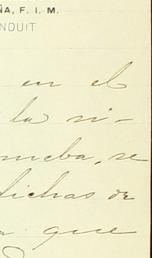 ÑA, F. I. M.
NDUIT
en el
la vi-
rueba, se
dichas de
a que